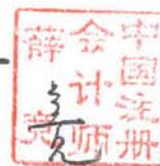 中国注册
会计师
薛